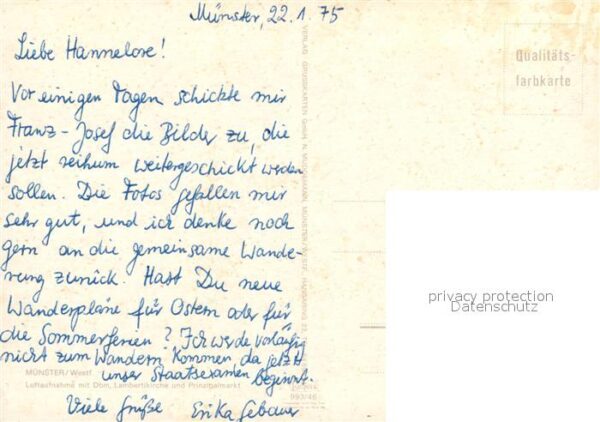 Münster, 22.1.75
Liebe Hannelore!
Vor einigen Tagen schickte mir
Franz-Josef die Bilder zu, die
jetzt reihum weitergeschickt werden
sollen. Die Fotos gefallen mir
sehr gut, und ich denke noch
gern an die gemeinsame Wande-
rung zurück. Hast Du neue
Wanderpläne für Ostern oder für
die Sommerferien? Ich werde vorläufig
nicht zum Wandern kommen, da jetzt
unser Staatsexamen beginnt.
Viele Grüße Erika Gebauer
MÜNSTER/Westf.
Luftaufnahme mit Dom, Lambertikirche und Prinzipalmarkt
993/46
Qualitäts-
farbkarte
privacy protection
Datenschutz